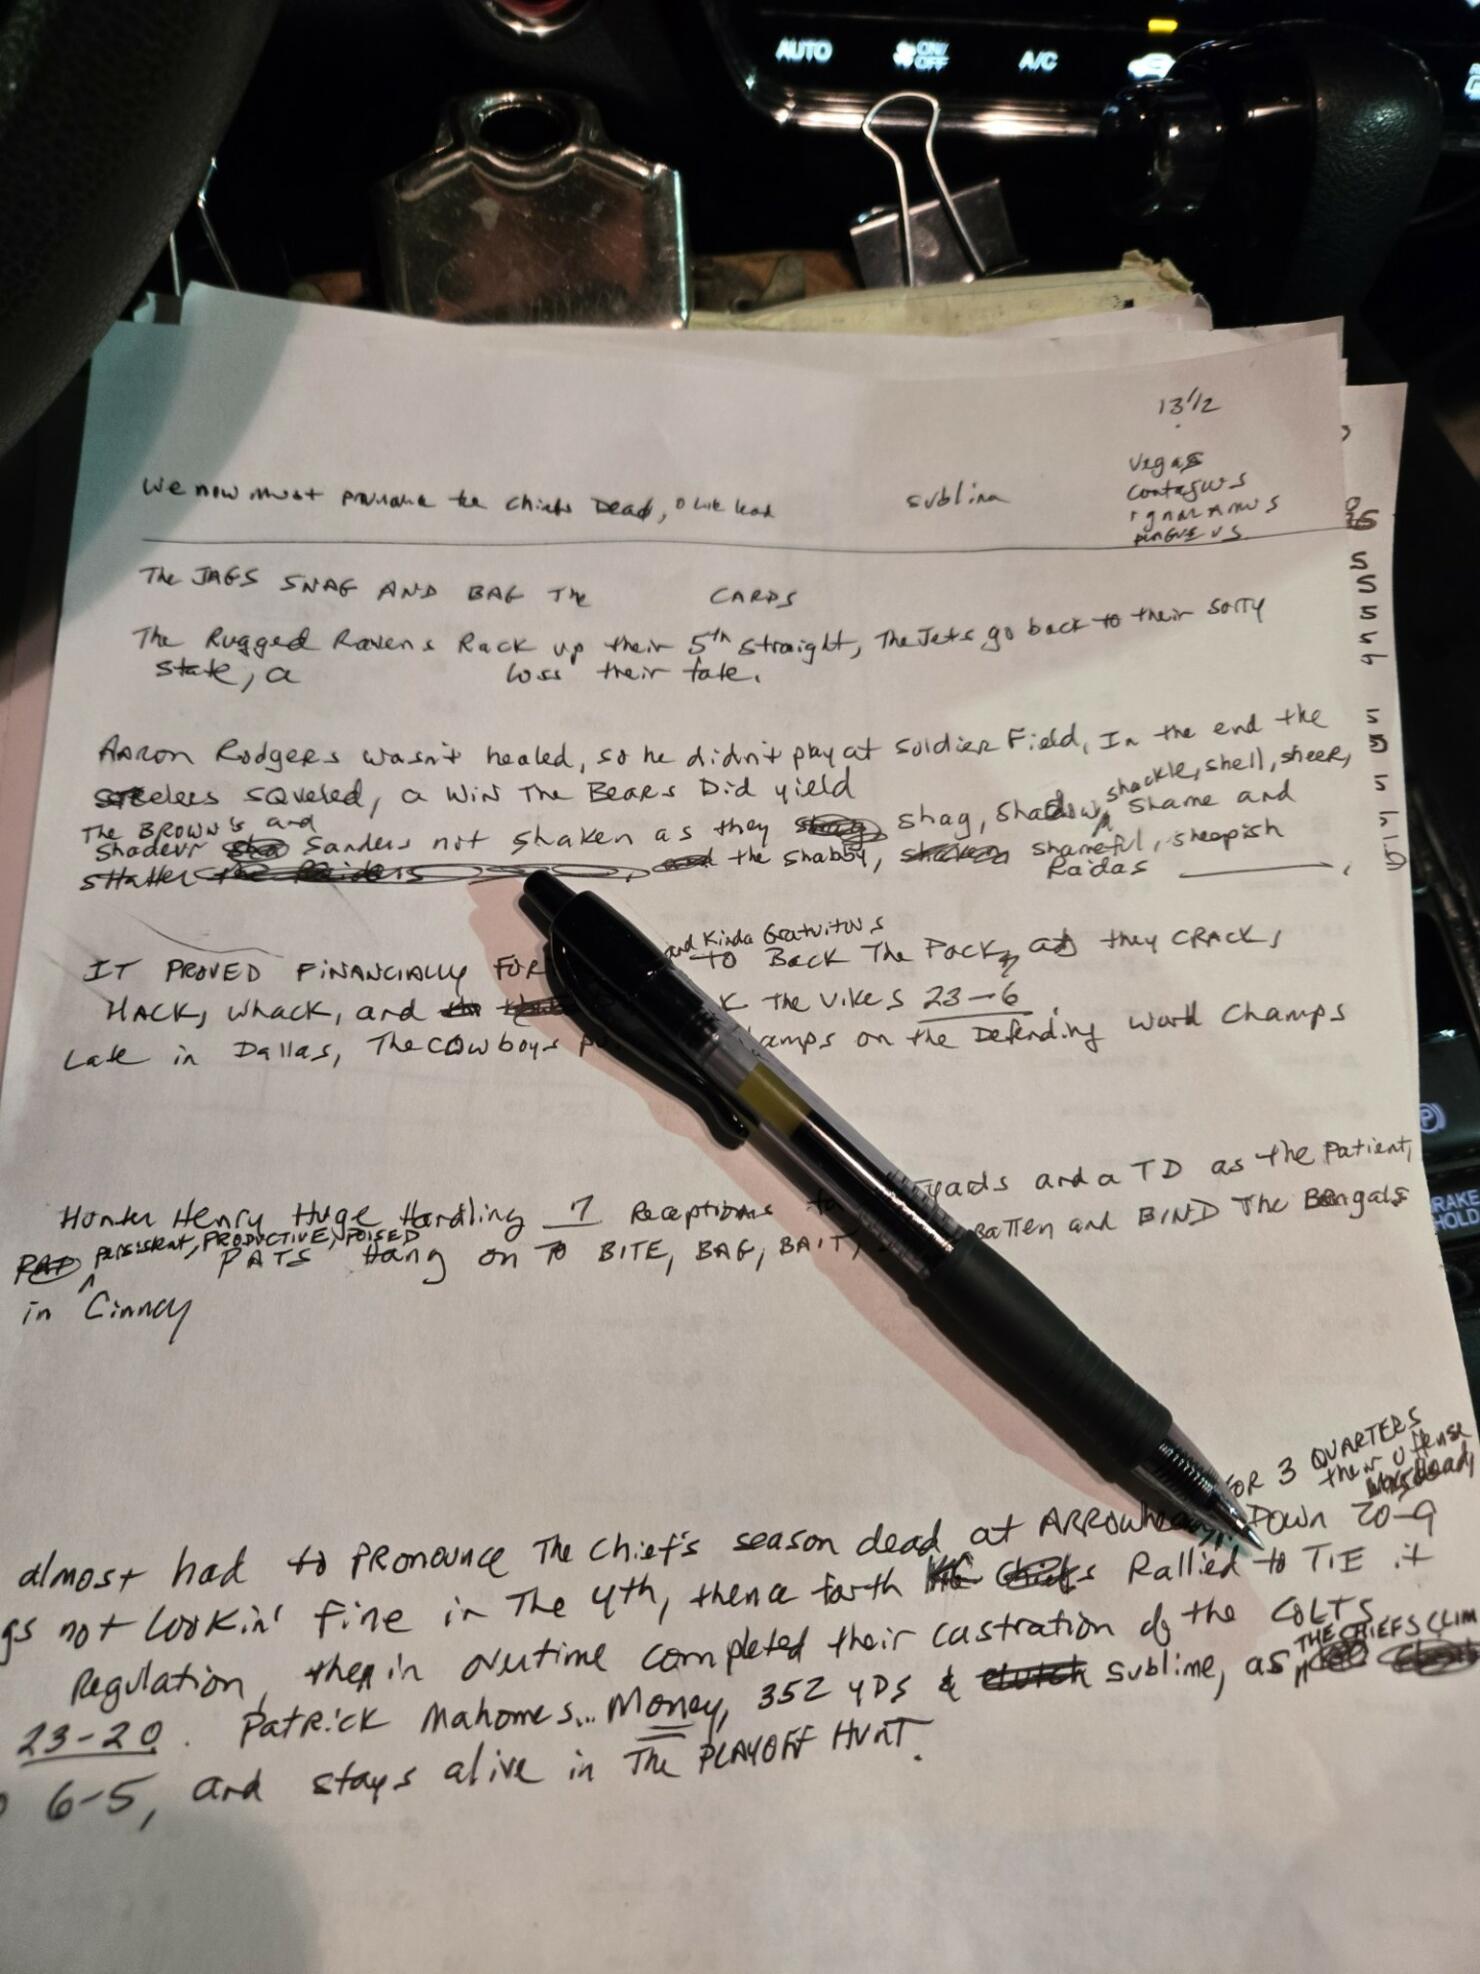 AUTO ON/OFF A/C
13 1/2
Vegas
contagus
ignoramus
We now must the Chiefs Dead, sublim
The JAGS SNAG AND BAG The CARDS
The Rugged Ravens Rack up their 5th straight, The Jets go back to their sorry
state, a loss their fate.
Aaron Rodgers wasn't healed, so he didn't play at Soldier Field, In the end the
Steelers squeled, a win The Bears Did yield
shackle, shell, sheer,
The BROWN'S and
Shadeur Sanders not shaken as they shag, shadow, shame and
shatter the shabby, shameful, sheapish
Raidas
and Kinda Gratuitous
IT PROVED FINANCIALLY FOR TO Back The Pack, as they CRACK,
HACK, whack, and the Vikes 23-6.
Late in Dallas, The cowboys amps on the Defending World Champs
Hunter Henry Huge Handling 7 Receptions yards and a TD as the Patient,
persistent, PRODUCTIVE, POISED
PATS Hang on To BITE, BAG, BAIT, BATTEN and BIND The Bengals
in Cinncy
FOR 3 QUARTERS
their offense
almost had to PRONOUNCE The Chief's season dead at ARROWhead, Down 20-9
gs not lookin' fine in The 4th, thence forth Rallied to TIE it
Regulation, then in overtime completed their castration of the COLTS
THE CHIEFS CLIM
23-20. Patrick Mahomes... Money, 352 YDS & sublime, as
6-5, and stays alive in The PLAYOFF HUNT.
BRAKE
HOLD